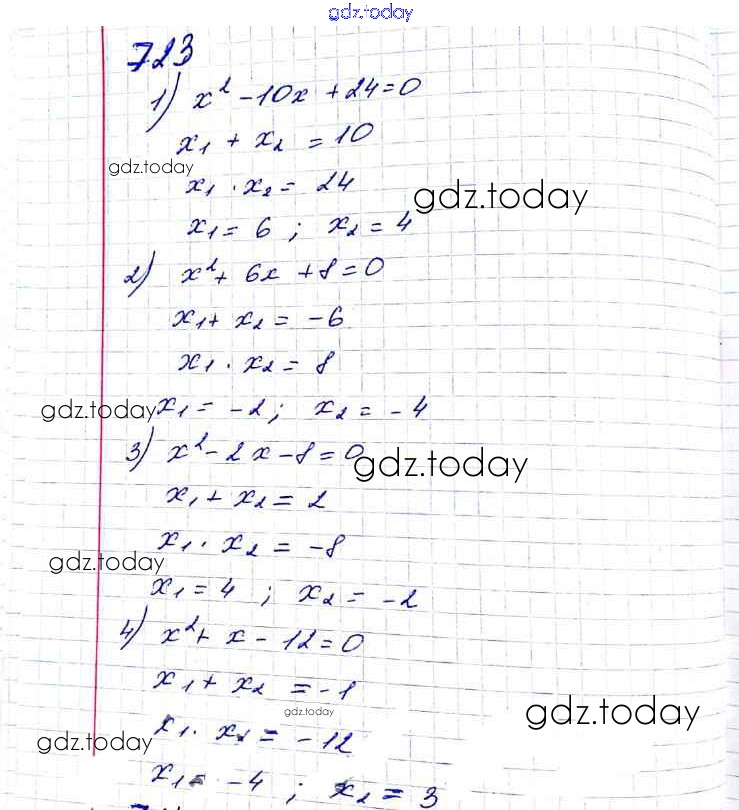 gdz.today
723
1) x² - 10x + 24 = 0
x₁ + x₂ = 10
gdz.today
x₁ · x₂ = 24
gdz.today
x₁ = 6 ; x₂ = 4
2) x² + 6x + 8 = 0
x₁ + x₂ = -6
x₁ · x₂ = 8
gdz.today x₁ = -2 ; x₂ = -4
3) x² - 2x - 8 = 0
gdz.today
x₁ + x₂ = 2
x₁ · x₂ = -8
gdz.today
x₁ = 4 ; x₂ = -2
4) x² + x - 12 = 0
x₁ + x₂ = -1
gdz.today
gdz.today
x₁ · x₂ = -12
gdz.today
x₁ = -4 ; x₂ = 3